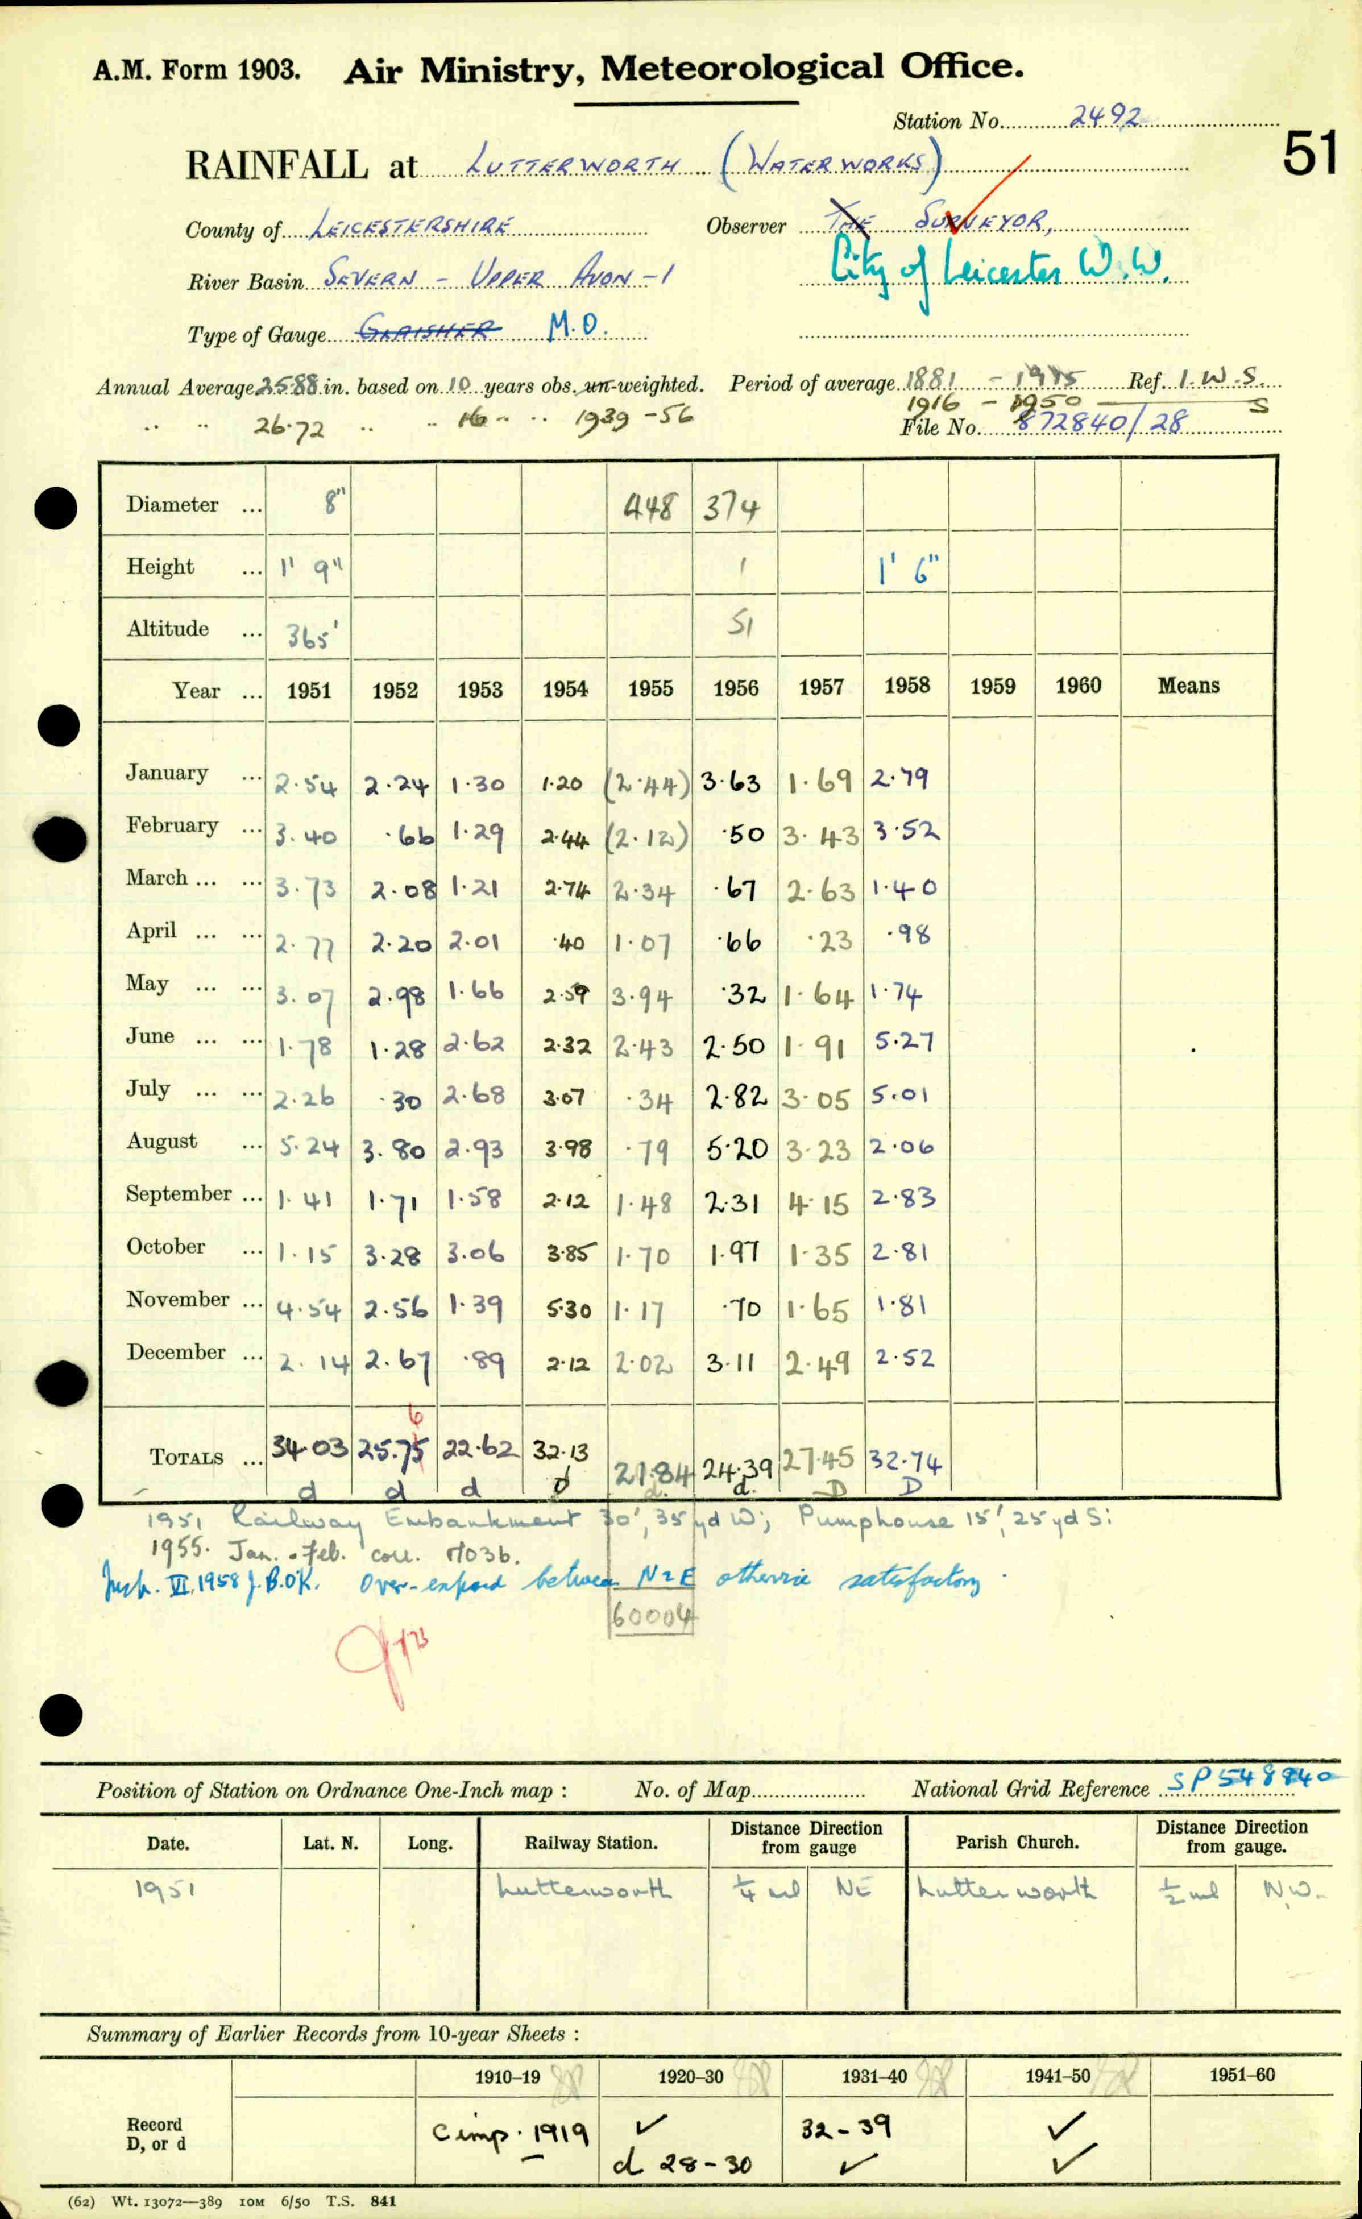 A.M. Form 1903. Air Ministry, Meteorological Office.
Station No. 2492
51
RAINFALL at LUTTERWORTH (WATERWORKS)
County of LEICESTERSHIRE Observer THE SURVEYOR,
City of Leicester W.W.
River Basin SEVERN - UPPER AVON - 1
Type of Gauge GLAISHER M.O.
Annual Average 25.88 in. based on 10 years obs. un-weighted. Period of average 1881 - 1915 Ref. I.W.S.
1916 - 1950 S
" " 26.72 " " 16 " " 1939 - 56 File No. 872840/28
Diameter ... 8" 448 374
Height ... 1' 9" 1 1' 6"
Altitude ... 365' 51
Year ... 1951 1952 1953 1954 1955 1956 1957 1958 1959 1960 Means
January ... 2.54 2.24 1.30 1.20 (2.44) 3.63 1.69 2.79
February ... 3.40 .66 1.29 2.44 (2.12) .50 3.43 3.52
March ... ... 3.73 2.08 1.21 2.74 2.34 .67 2.63 1.40
April ... ... 2.77 2.20 2.01 .40 1.07 .66 .23 .98
May ... ... 3.07 2.98 1.66 2.59 3.94 .32 1.64 1.74
June ... ... 1.78 1.28 2.62 2.32 2.43 2.50 1.91 5.27
July ... ... 2.26 .30 2.68 3.07 .34 2.82 3.05 5.01
August ... 5.24 3.80 2.93 3.98 .79 5.20 3.23 2.06
September ... 1.41 1.71 1.58 2.12 1.48 2.31 4.15 2.83
October ... 1.15 3.28 3.06 3.85 1.70 1.97 1.35 2.81
November ... 4.54 2.56 1.39 5.30 1.17 .70 1.65 1.81
December ... 2.14 2.67 .89 2.12 2.02 3.11 2.49 2.52
6
TOTALS ... 34.03 25.75 22.62 32.13 21.84 24.39 27.45 32.74
d d d d d. d. D D
1951 Railway Embankment 30', 35 yd W; Pumphouse 15', 25 yd S:
1955. Jan. - Feb. corr. MO3b.
Insp. VI.1958 J.B.OK. Over-exposed between N & E otherwise satisfactory.
60004
Position of Station on Ordnance One-Inch map : No. of Map National Grid Reference SP 548840
Date. Lat. N. Long. Railway Station. Distance from gauge Direction Parish Church. Distance from gauge. Direction
1951 Lutterworth ¼ ml NE Lutterworth ½ ml N.W.
Summary of Earlier Records from 10-year Sheets :
1910–19 1920–30 1931–40 1941–50 1951–60
Record D, or d Cimp. 1919 ✓ 32-39 ✓
d 28-30 ✓ ✓
(62) Wt. 13072—389 10M 6/50 T.S. 841